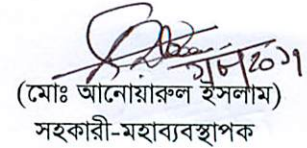 (মোঃ আনোয়ারুল ইসলাম)
সহকারী-মহাব্যবস্থাপক